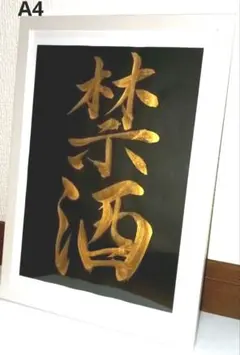 A4
禁酒